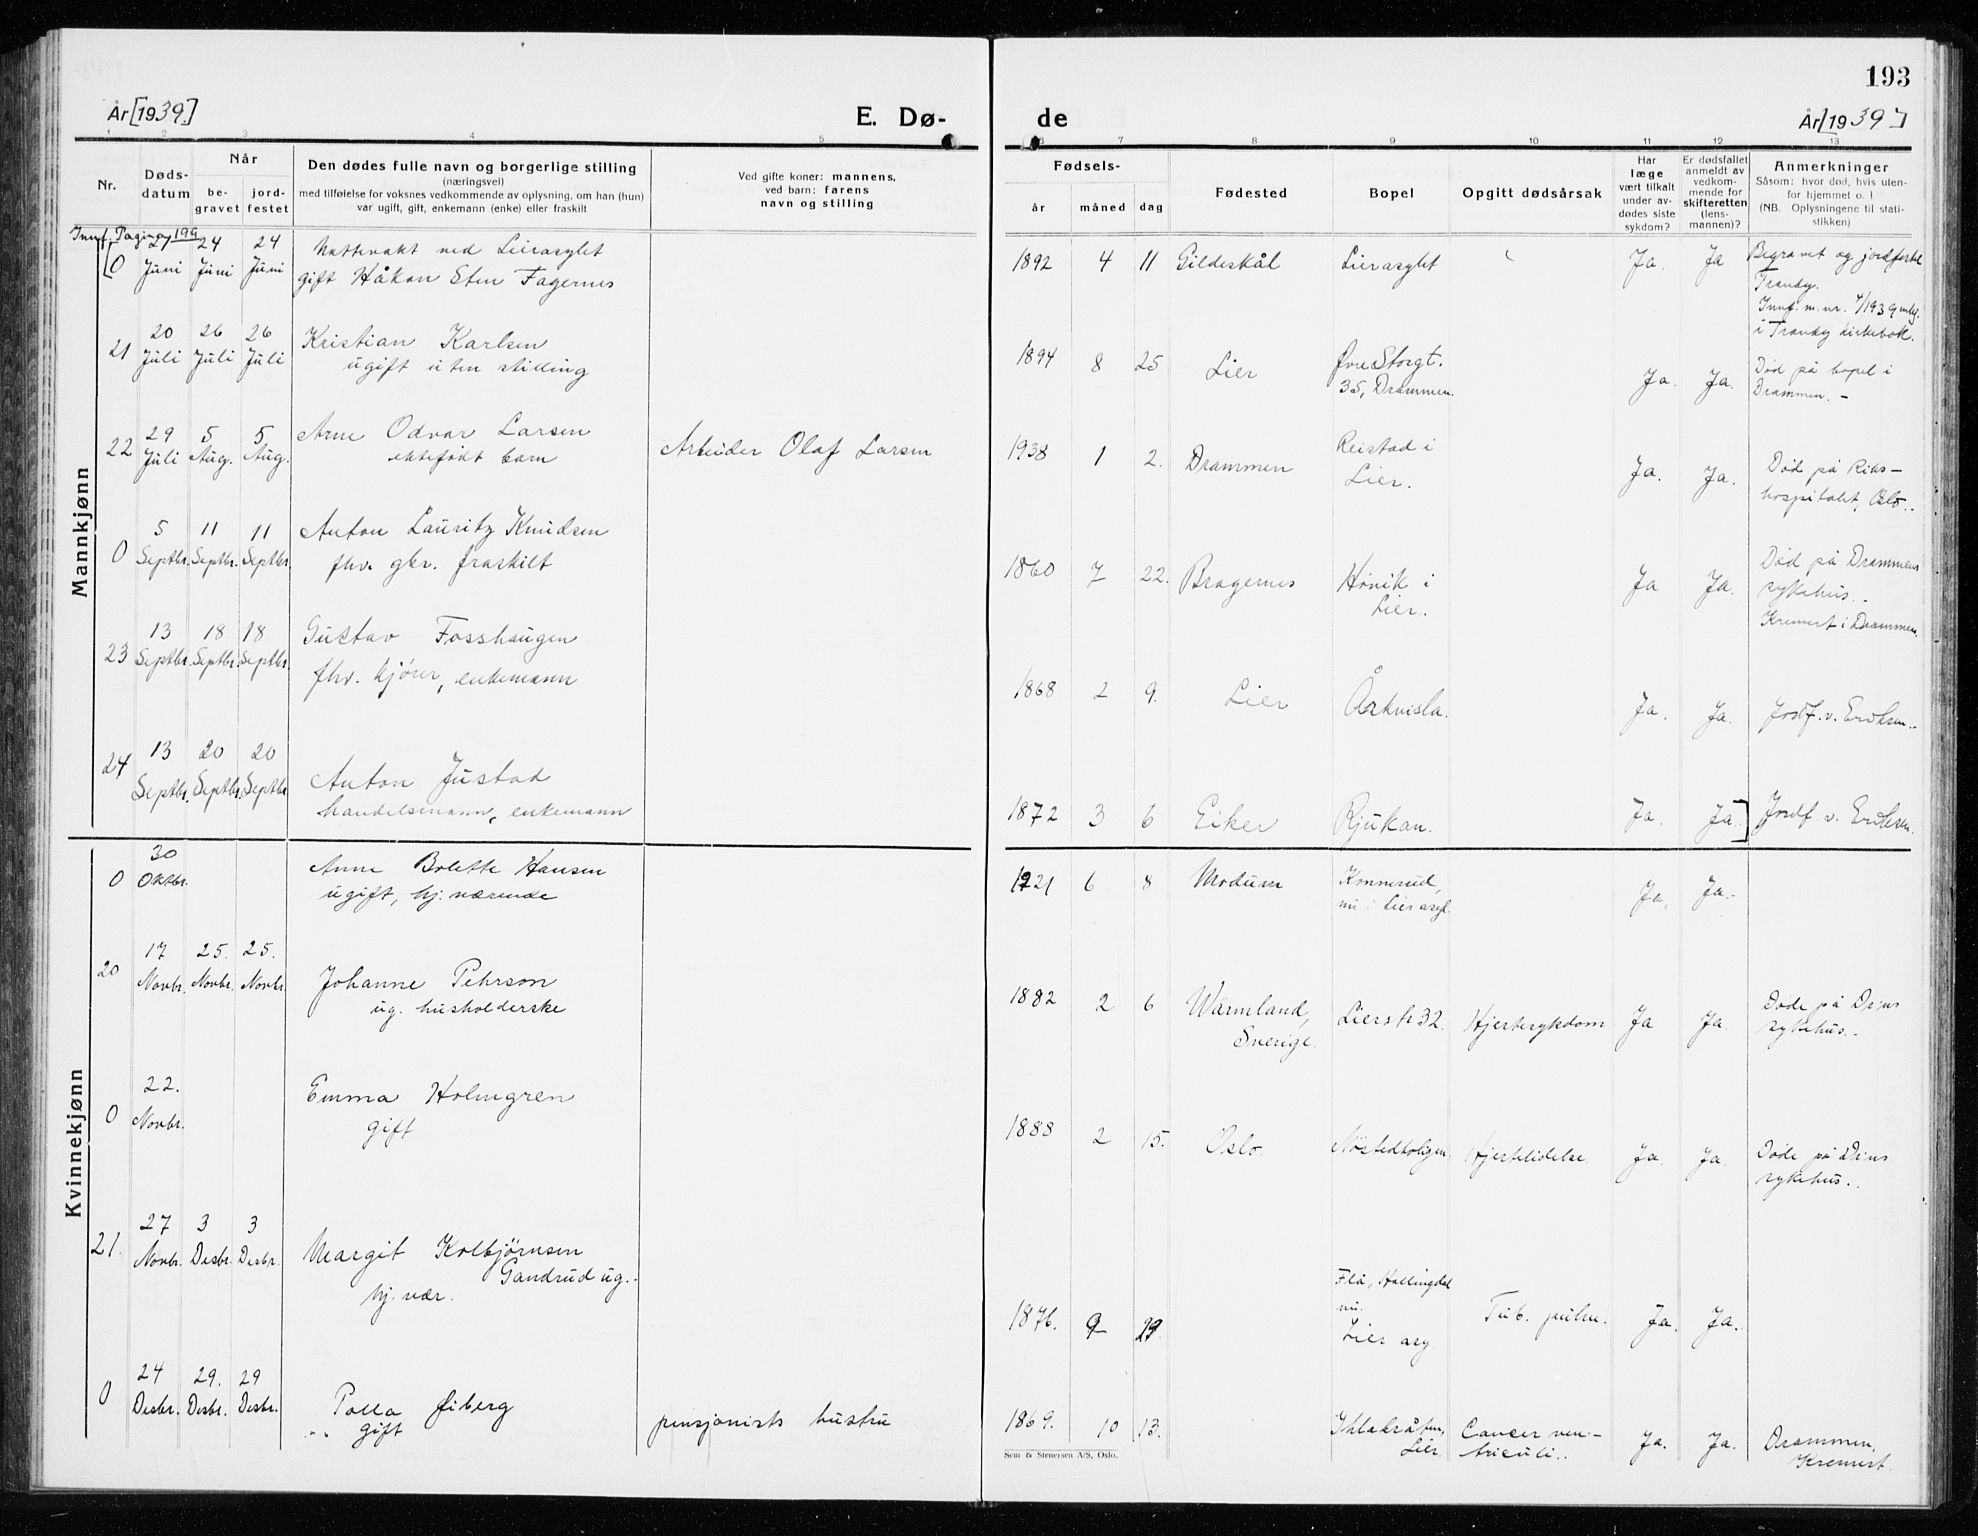 193
År [1939.]
E. Dø-
de
År [1939]
1 2 3 4 5 6 7 8 9 10 11 12 13
Nr.
Døds-
datum
Når
be-
gravet
jord-
festet
Den dødes fulle navn og borgerlige stilling
(næringsvei)
med tilføielse for voksnes vedkommende av oplysning, om han (hun)
var ugift, gift, enkemann (enke) eller fraskilt
Ved gifte koner: mannens,
ved barn: farens
navn og stilling
Fødsels-
år måned dag
Fødested
Bopel
Opgitt dødsårsak
Har
læge
vært tilkalt
under av-
dødes siste
sykdom?
Er dødsfallet
anmeldt av
vedkom-
mende for
skifteretten
(lens-
mannen)?
Anmerkninger
Såsom: hvor død, hvis uten-
for hjemmet o. l.
(NB. Oplysningene til stati-
stikken)
Mannkjønn
Innf. Pagina 199
0 Juni 24 Juni 24 Juni
Nattevakt ved Lierasylet
gift Håkon Sten Fagernes
1892 4 11 Gildeskål Lierasylet Ja. Ja
Begravet og jordfestet
Tranby.
Innf. m. nr. 4/1939
i Tranby kirkebok.
21 20 Juli 26 Juli 26 Juli
Kristian Karlsen
ugift uten stilling
1894 8 25 Lier
Øvre Storgt.
35, Drammen.
Ja. Ja.
Død på bopel i
Drammen. -
22 29 Juli 5 Aug. 5 Aug.
Arne Odvar Larsen
ektefødt barn
Arbeider Olaf Larsen
1938 1 2. Drammen
Reistad i
Lier.
Ja. Ja.
Død på Riks-
hospitalet, Oslo..
0 5 Septbr. 11 Septbr. 11 Septbr.
Anton Lauritz Knudsen
fhv. gbr. fraskilt
1860 7 22. Bragernes
Høvik i
Lier.
Ja Ja.
Død på Drammens
sykehus..
Kremert i Drammen.
23 13 Septbr. 18 Septbr. 18 Septbr.
Gustav Fosshaugen
fhv. kjører, enkemann
1868 2 9. Lier Årkvisla. Ja. Ja.
Jordf. v. Eriksen..
24 13 Septbr. 20 Septbr. 20 Septbr.
Anton Justad
handelsmann, enkemann
1872 3 6 Eiker Rjukan. Ja. Ja.
Jordf v. Eriksen.
Kvinnekjønn
0 30 Oktbr.
Anne Bolette Hansen
ugift, hj. værende
6 8 Modum
Konnerud,
nu: Lier asyl.
Ja, Ja.-
20 17 Novbr. 25. Novbr. 25. Novbr.
Johanne Pehrson
ug. husholderske
1882 2 6
Wärmland,
Sverige.
Lierstr 32. Hjertesykdom Ja Ja.
Døde på D.ms
sykehus.-
0 22. Novbr.
Emma Holmgren
gift
1888 2 15. Oslo. Nøstedboligen. Hjertelidelse. Ja. Ja.
Døde på D.ms
sykehus..
21. 27 Novbr. 3 Desbr. 3 Desbr.
Margit Kolbjørnsen
Gandrud ug..
hj. vær.
1876. 9 29
Flå, Hallingdal
nu.
Lier asy
Tub. pulm. Ja. Ja.
0 24 Desbr. 29. Desbr. 29 Desbr.
gift
pensjonists hustru
1869. 10 13.
Lier.
Cancer ven-
triculi..
Ja. Ja.
Drammen,
Kremert.
Sem & Stenersen A/S, Oslo.